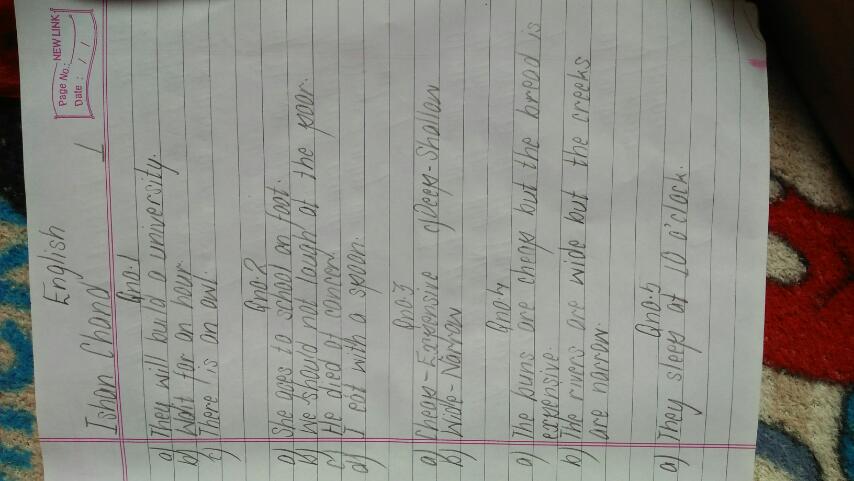 NEW LINK
Page No.:
Date : / /
English
Ishan Chand 1
Qno.1
a) They will build a university.
b) Wait for an hour.
c) There is an owl.
Qno.2
a) She goes to school on foot.
b) We should not laugh at the poor.
c) He died of cancer.
d) I eat with a spoon.
Qno.3
a) Cheap-Expensive c) Deep-Shallow
b) Wide-Narrow
Qno.4
a) The buns are cheap but the bread is
expensive.
b) The rivers are wide but the creeks
are narrow.
Qno.5
a) They sleep at 10 o'clock.